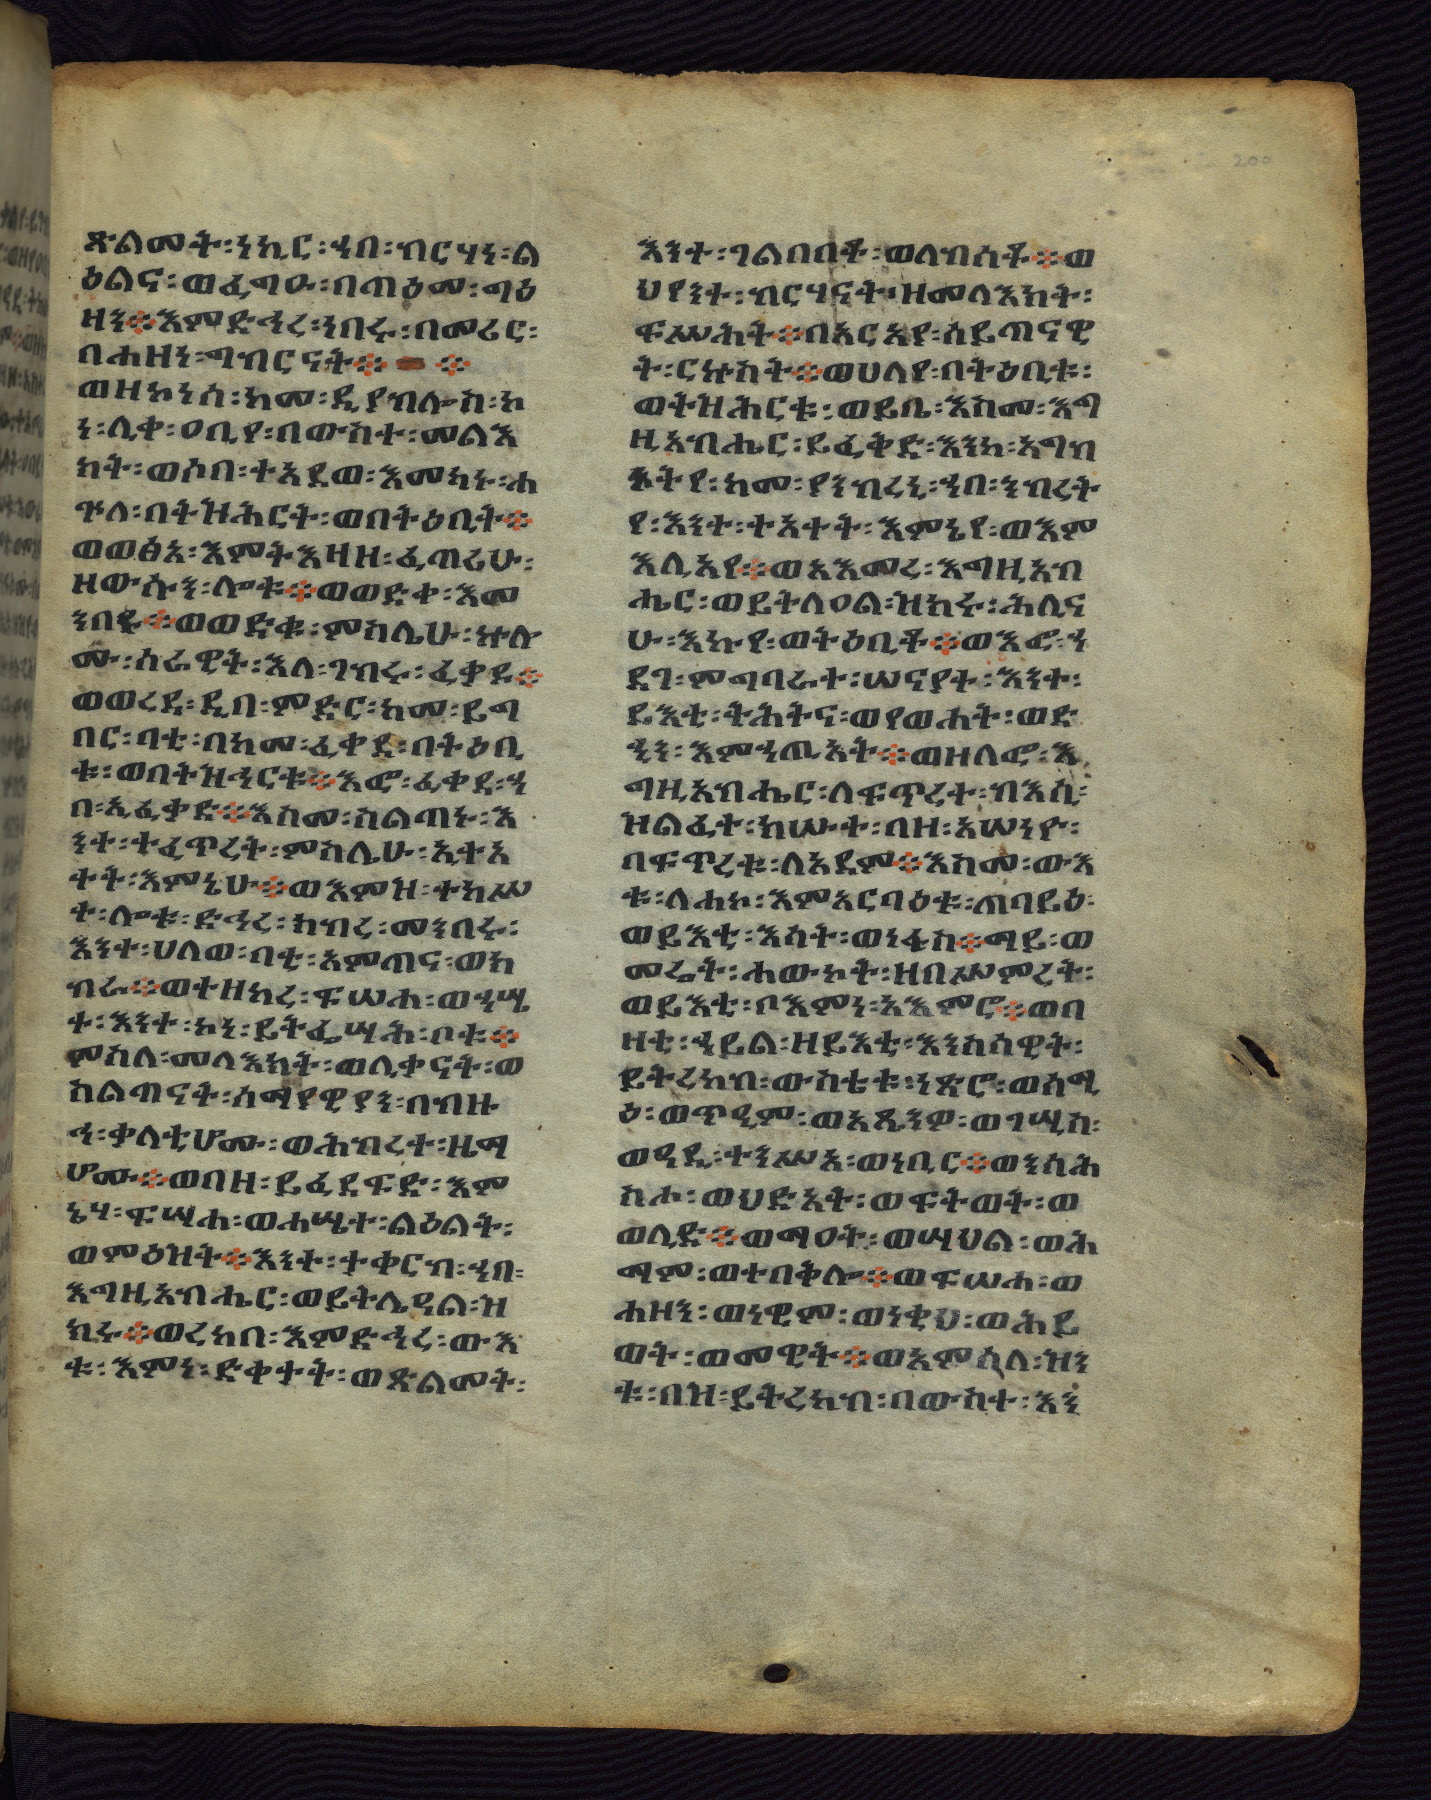 ጽልመት፡ነኪር፡ኀበ፡ብርሃነ፡ል
ዕልና፡ወፈግዑ፡በጠዕመ፡ግዕ
ዘን፨እምድኅረ፡ነበሩ፡በመሪር፡
በሐዘነ፡ግብርናት፨ ፨
ወዘኮነሰ፡ከመ፡ዲያብሎስ፡ኮ
ነ፡ሊቀ፡ዐቢየ፡በውስተ፡መልአ
ክት፡ወሶበ፡ተአደወ፡እመካኑ፡ሐ
ጕለ፡በትዝሕርት፡ወበትዕቢት፨
ወወፅአ፡እምትእዛዘ፡ፈጣሪሁ፡
ዘውሱን፡ሎቱ፨ወወድቀ፡እመ
ንበሩ፨ወወድቁ፡ምስሌሁ፡ኵሎ
ሙ፡ሰራዊት፡እለ፡ገብሩ፡ፈቃዶ፨
ወወረደ፡ዲበ፡ምድር፡ከመ፡ይግ
በር፡ባቲ፡በከመ፡ፈቀደ፡በትዕቢ
ቱ፡ወበትዝኅርቱ፨እሞ፡ፈቀደ፡ኀ
በ፡አፈቃድ፨እስመ፡ስልጣኑ፡እ
ንተ፡ተፈጥረት፡ምስሌሁ፡ኢተአ
ተት፡እምኔሁ፨ወእምዝ፡ተከሥ
ተ፡ሎቱ፡ድኅረ፡ክብረ፡መንበሩ፡
እንተ፡ሀለወ፡ባቲ፡አምጣነ፡ወክ
ብራ፨ወተዘከረ፡ፍሥሐ፡ወኀሤ
ተ፡እንተ፡ኮነ፡ይትፌሣሕ፡ቦቱ፨
ምስለ፡መላእክት፡ወሊቃናት፡ወ
ስልጣናት፡ሰማያዊያን፡በብዙ
ኅ፡ቃላቲሆሙ፡ወሕብረተ፡ዜማ
ሆሙ፨ወበዘ፡ይፈደፍድ፡እም
ኔሃ፡ፍሣሐ፡ወሐሤተ፡ልዕልት፡
ወምዕዝት፨እንተ፡ተቀርብ፡ኀበ፡
እግዚአብሔር፡ወይትሌዓል፡ዝ
ክሩ፨ወረከበ፡እምድኅረ፡ውእ
ቱ፡እምነ፡ድቀተት፡ወጽልመት፡
እንተ፡ገልበበቶ፡ወለብሰቶ፨ወ
ህየንተ፡ብርሃናት፡ዘመላእክት፡
ፍሥሐት፨በአርአያ፡ሰይጣናዊ
ት፡ርኵስት፨ወሀለየ፡በትዕቢቱ፡
ወትዝሕርቱ፡ወይቤ፡እስመ፡እግ
ዚአብሔር፡ይፈቅድ፡እንከ፡አግብ
እትየ፡ከመ፡ያንብረኒ፡ኀበ፡ንብረት
የ፡እንተ፡ተአተት፡እምኔየ፡ወእም
እሊአየ፨ወአእመረ፡እግዚአብ
ሔር፡ወይትለዐል፡ዝክሩ፡ሕሊና
ሁ፡እኩየ፡ወትዕቢቶ፨ወእሞ፡ኀ
ደገ፡ምግባራተ፡ሠናያት፡እንተ፡
ይእቲ፡ትሕትና፡ወየወሐት፡ወድ
ኅን፡እምኀጢአት፨ወዘለሞ፡እ
ግዚአብሔር፡ለፍጥረተ፡ብእሲ፡
ዝልፈተ፡ከሡተ፡በዘ፡አሠነዮ፡
በፍጥረቱ፡ለአዳም፨እስመ፡ውእ
ቱ፡ለሐኮ፡እምአርባዕቱ፡ጠባይዕ፡
ወይእቲ፡እሳት፡ወነፋስ፨ማይ፡ወ
መሬት፡ሐውኮት፡ዘበሥምረት፡
ወይእቲ፡ቦእምነ፡አእምሮ፨ወበ
ዛቲ፡ኃይል፡ዘይእቲ፡እንስሳዊት፡
ይትረከብ፡ውስቴቱ፡ነጽሮ፡ወሰሚ
ዕ፡ወጥዒም፡ወአጼንዎ፡ወገሢስ፡
ወዓዲ፡ተንሥአ፡ወነቢር፨ወንስሐ
ስሐ፡ወህድአት፡ወፍትወት፡ወ
ወሊድ፨ወማዐት፡ወሣህል፡ወሕ
ማም፡ወተበቅሎ፨ወፍሥሐ፡ወ
ሐዘን፡ወነዊም፡ወነቂህ፡ወሕይ
ወት፡ወመዊት፨ወእምሳለ፡ዝን
ቱ፡በዝ፡ይትረከብ፡በውስተ፡እን